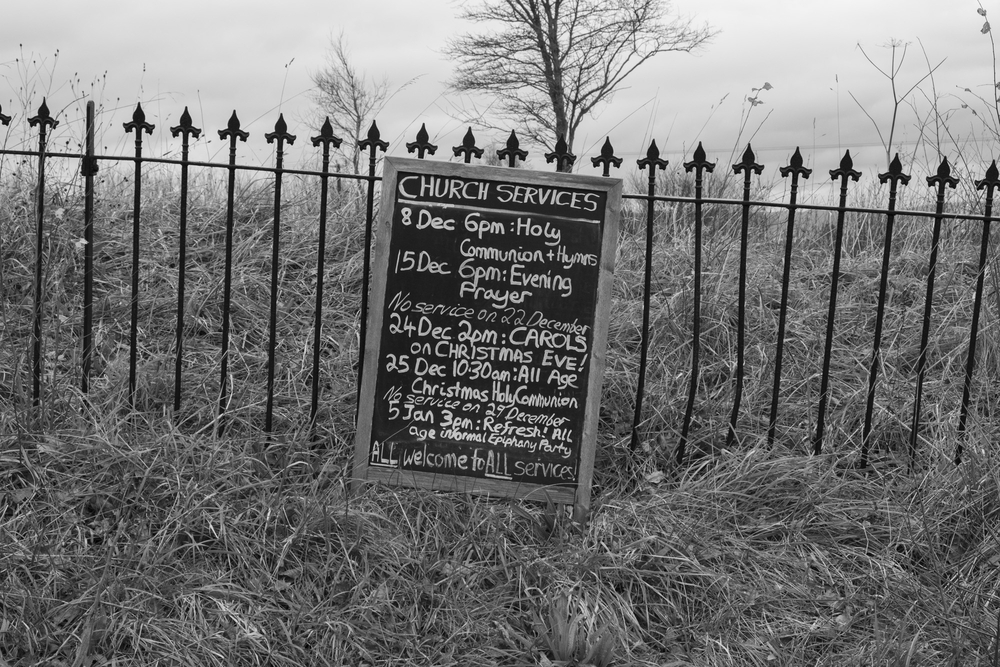 CHURCH SERVICES
8 Dec 6pm: Holy
Communion + Hymns
15 Dec 6pm: Evening
Prayer
No service on 22 December
24 Dec 2pm: CAROLS
on CHRISTMAS EVE!
25 Dec 10:30am: All Age
Christmas Holy Communion
No service on 29 December
5 Jan 3pm: Refresh! All
age informal Epiphany Party
ALL welcome to ALL services!